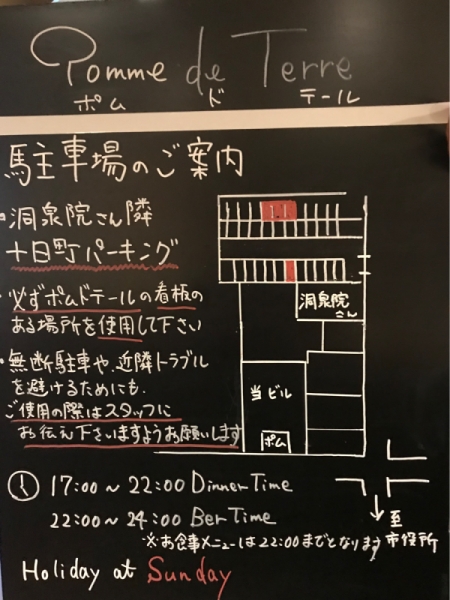 Pomme de Terre
ポム ド テール
駐車場のご案内
・洞泉院さん隣
十日町パーキング
・必ずポムドテールの看板の
ある場所を使用して下さい
・無断駐車や、近隣トラブル
を避けるためにも、
ご使用の際はスタッフに
お伝え下さいますようお願いします
洞泉院
さん
当ビル
ポム
至
市役所
17:00～22:00 Dinner Time
22:00～24:00 Ber Time
※お食事メニューは22:00までとなります
Holiday at Sunday